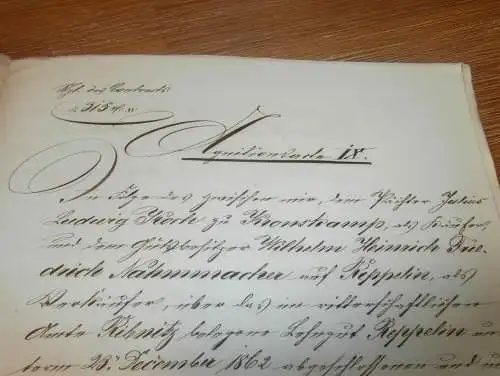 Agnitionsacte IX.
In Folge des zwischen mir, dem Pächter Julius
Ludwig Koch zu Kronskamp, als Käufer
und dem Gutsbesitzer Wilhelm Heinrich Frie-
drich Nahmmacher auf Reppelin, als
Verkäufer, über das im ritterschaftlichen
Amte Ribnitz belegene Lehngut Reppelin un-
term 28t. December 1862 abgeschlossenen und